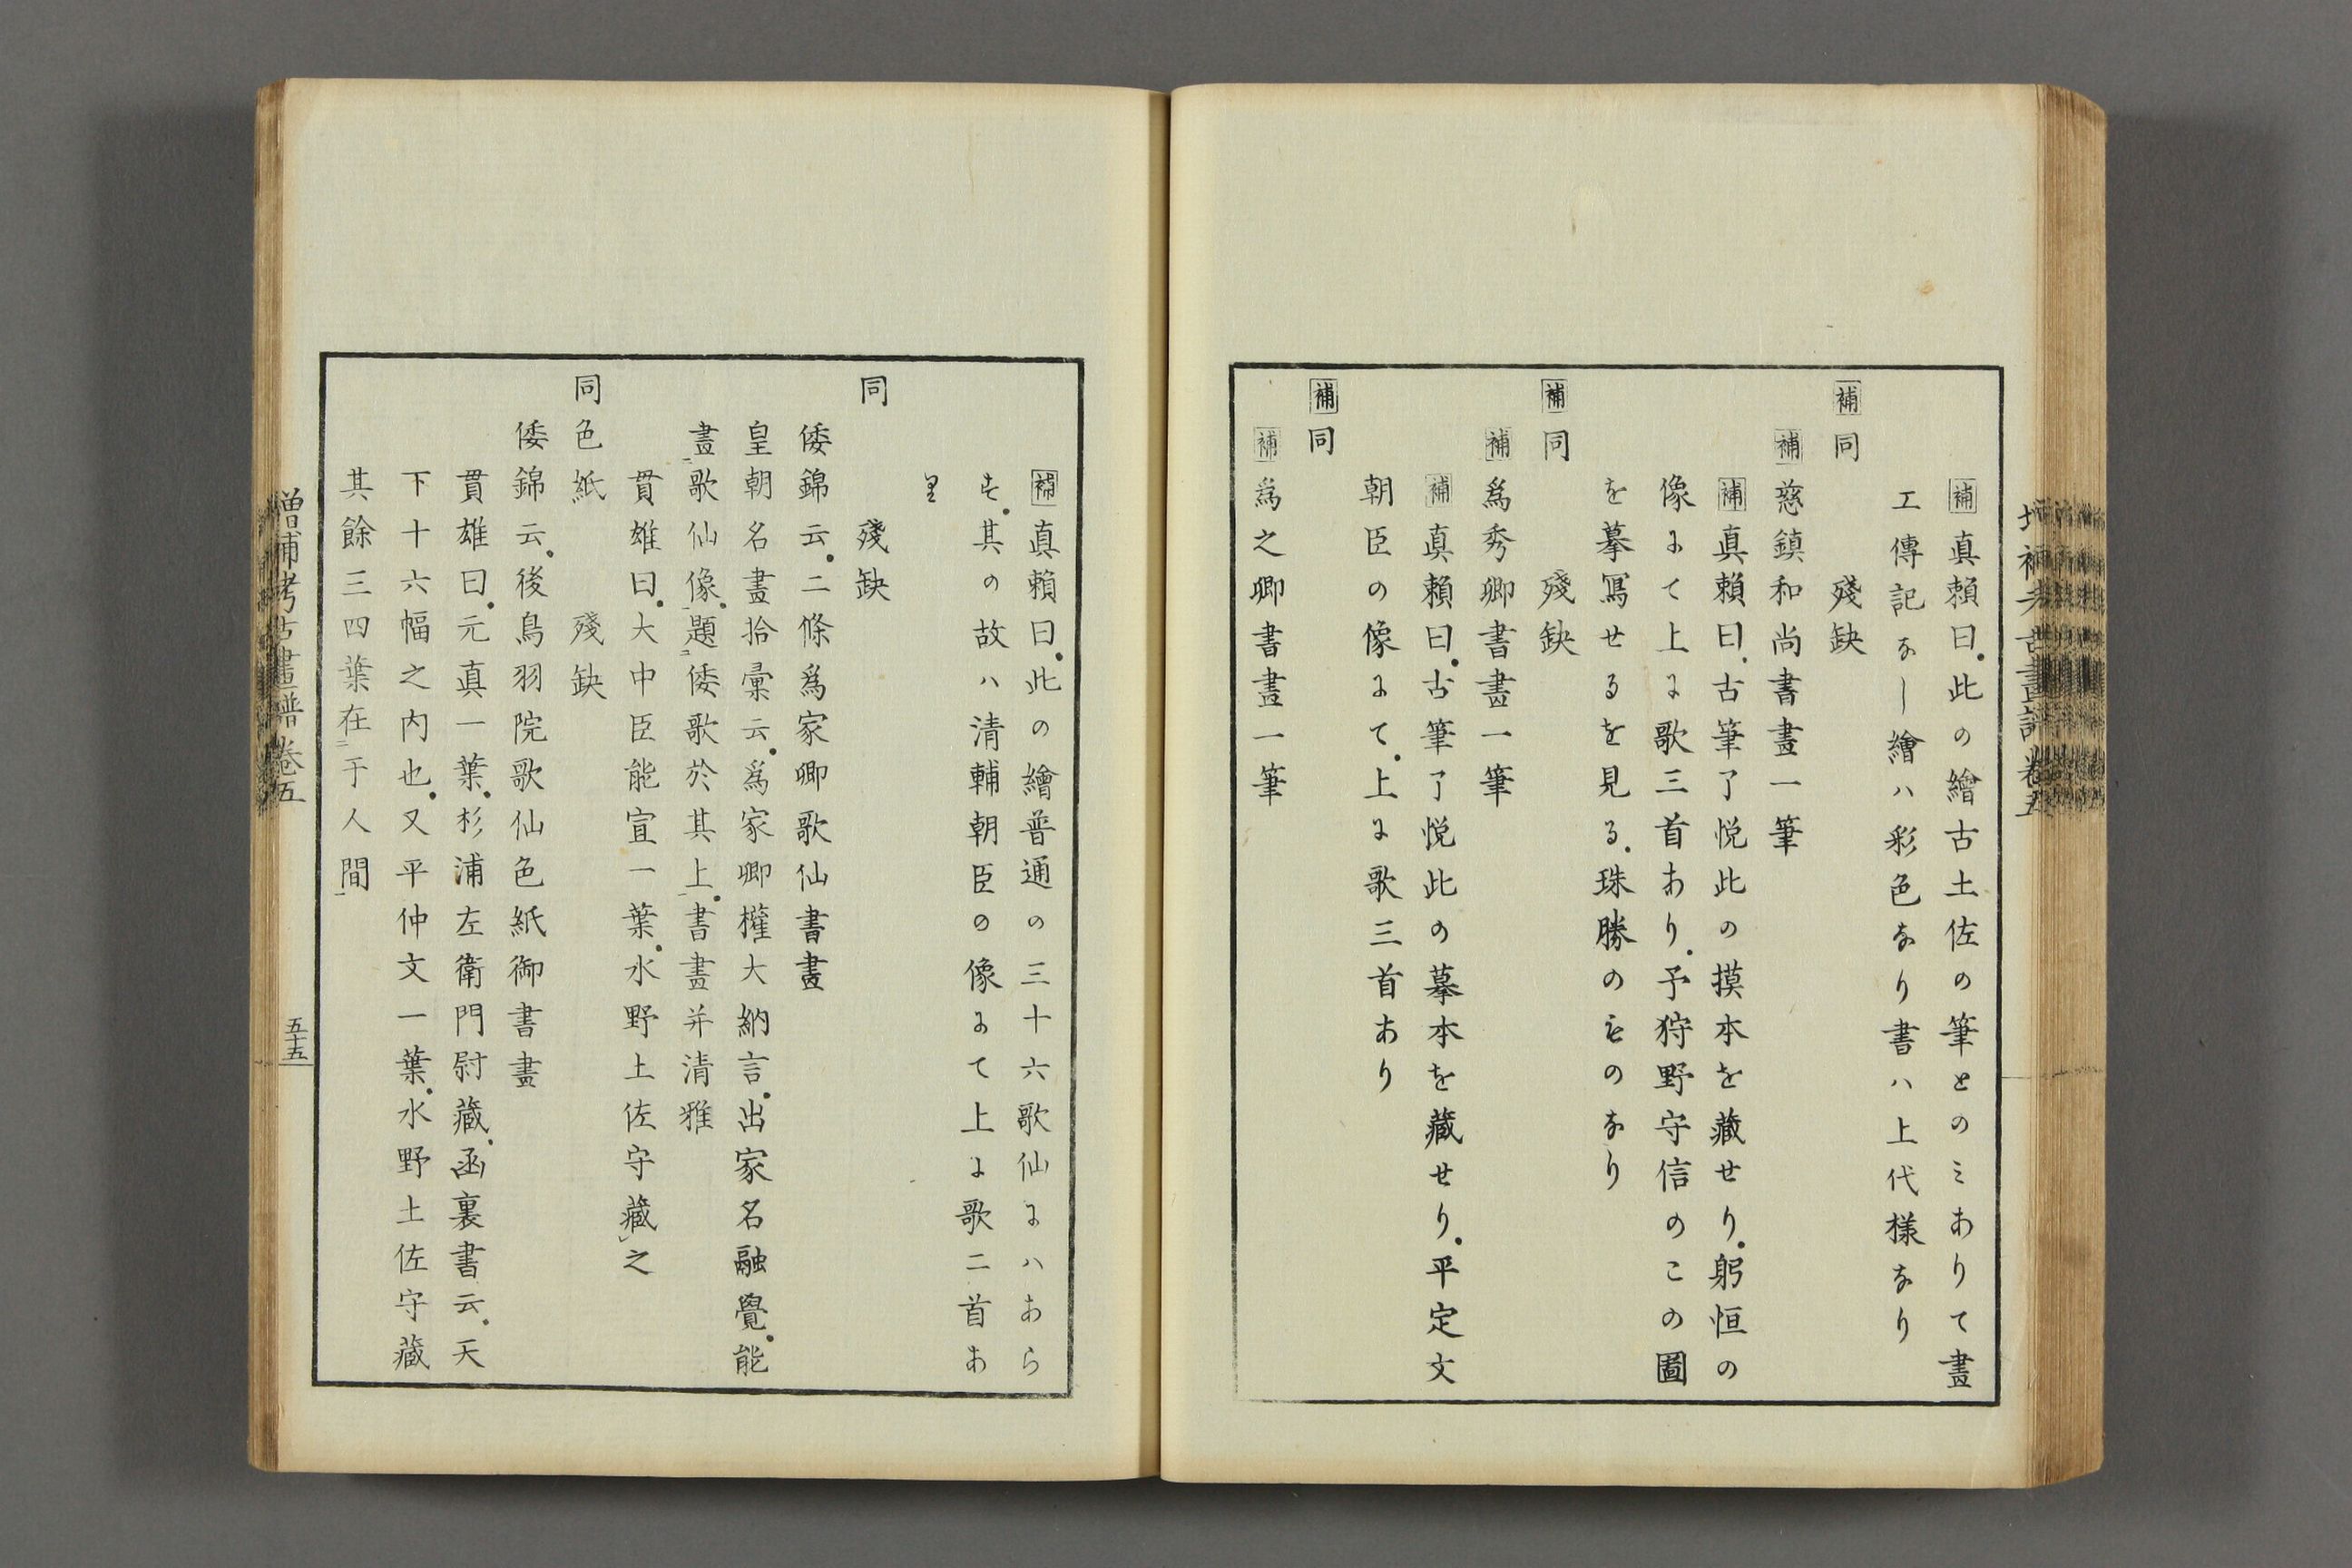 補真頼曰此の繪古土佐の筆とのミありて畫
工傳記なし繪ハ彩色なり書ハ上代様なり
補同　殘缺
補慈鎮和尚書畫一筆
補真頼曰古筆了悦此の摸本を藏せり躬恒の
像にて上に歌三首あり予狩野守信のこの圖
を摹寫せるを見る珠勝のものなり
補同　殘缺
補爲秀卿書畫一筆
補真頼曰古筆了悦此の摹本を藏せり平定文
朝臣の像にて上に歌三首あり
補同
補爲之卿書畫一筆
補真頼曰此の繪普通の三十六歌仙にハあら
ず其の故ハ清輔朝臣の像にて上に歌二首あ
り
同　殘缺
倭錦云二條爲家卿歌仙書畫
皇朝名畫拾彙云爲家卿權大納言出家名融覺能
畫歌仙像題倭歌於其上書畫并清雅
貫雄曰大中臣能宣一葉水野土佐守藏之
同色紙　殘缺
倭錦云後鳥羽院歌仙色紙御書畫
貫雄曰元真一葉杉浦左衛門尉藏函裏書云天
下十六幅之内也又平仲文一葉水野土佐守藏
其餘三四葉在于人間
増補考古畫譜　卷五
五十五